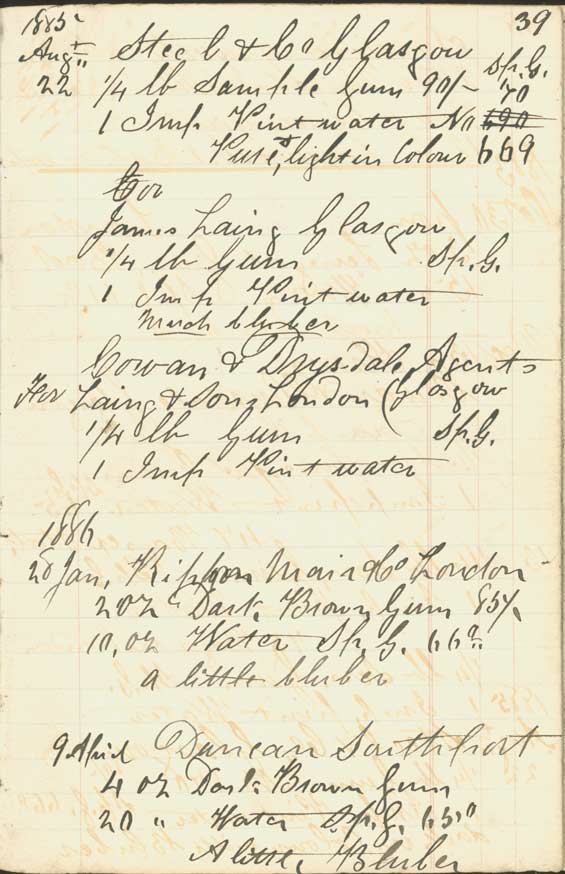 1885 39
Augt Steel & Co Glasgow Sp.G.
22 1/4 lb Sample Gum 90/- 70
1 Imp Pint water No 690
Pure & light in Colour 669
For
James Laing Glasgow
1/4 lb Gum Sp.G.
1 Imp Pint water
Much bluber
Cowan & Drysdale, Agents
For Laing & Sons London (Glasgow
1/4 lb Gum Sp.G.
1 Imp Pint water
1886
28 Jan, Mair & Co London
2 oz Dark Brown Gum 85/-
10, oz Water Sp. G. 66
a little bluber
9 April Duncan Southport
4 oz Dark Brown Gum
20 " Water Sp.G. 650
A little Bluber